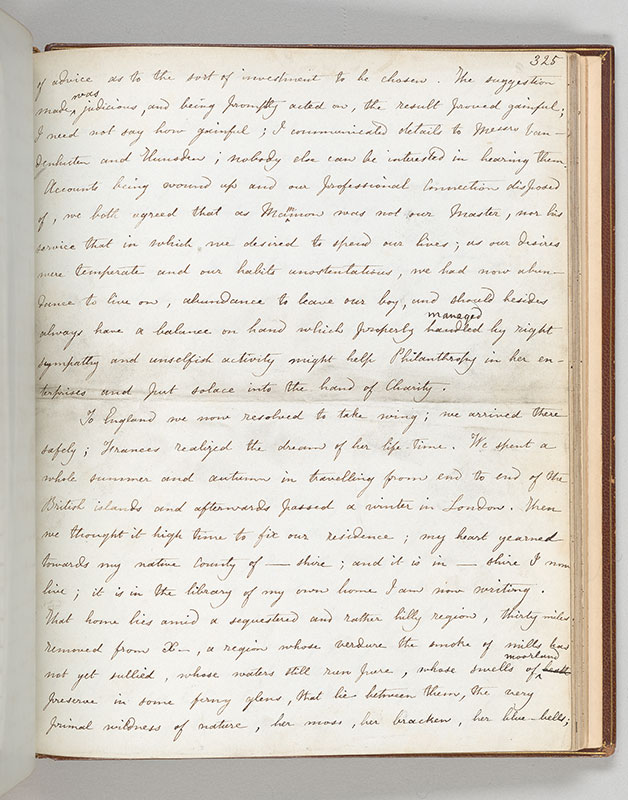 325
of advice as to the sort of investment to be chosen. The suggestion
made was judicious, and being promptly acted on, the result proved gainful;
I need not say how gainful; I communicated details to Messrs Van-
denhuten and Hunsden; nobody else can be interested in hearing them.
Accounts being wound up and our professional connection disposed
of, we both agreed that as Mammon was not our Master, nor his
service that in which we desired to spend our lives; as our desires
were temperate and our habits unostentatious, we had now abun-
dance to live on, abundance to leave our boy, and should besides
always have a balance on hand which properly handled managed by right
sympathy and unselfish activity might help Philanthropy in her en-
terprises and put solace into the hand of Charity.
To England we now resolved to take wing; we arrived there
safely; Frances realized the dream of her life-time. We spent a
whole summer and autumn in travelling from end to end of the
British islands and afterwards passed a winter in London. Then
we thought it high time to fix our residence; my heart yearned
towards my native county of — shire; and it is in — shire I now
live; it is in the library of my own home I am now writing.
That home lies amid a sequestered and rather hilly region, thirty miles
removed from X—, a region whose verdure the smoke of mills has
not yet sullied, whose waters still run pure, whose swells of moorland
preserve in some ferny glens, that lie between them, the very
primal wildness of nature, her moss, her bracken, her blue-bells;